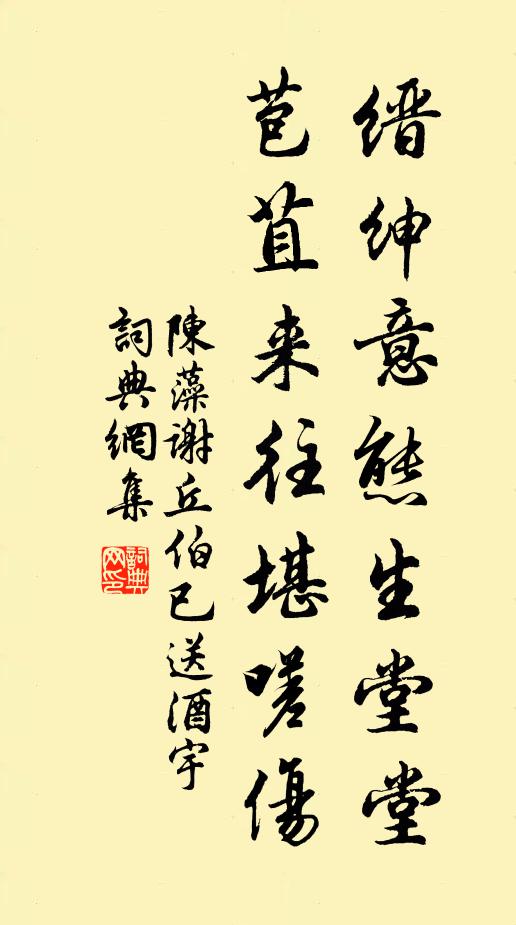 缙绅意態生堂堂
苞苴来往堪嗟傷
陳藻謝丘伯已送酒宇
詞典網集
詞典网印